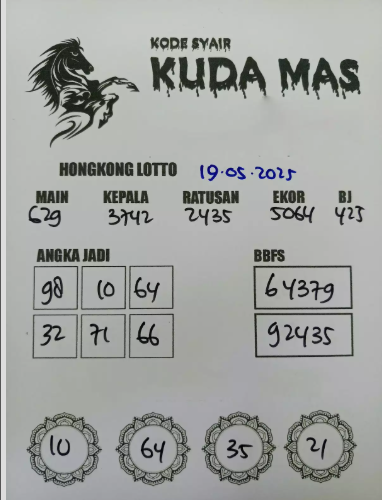 KODE SYAIR
KUDA MAS
HONGKONG LOTTO 19.05.2025
MAIN KEPALA RATUSAN EKOR BJ
629 3742 2435 5064 425
ANGKA JADI BBFS
98 10 64 64379
32 71 66 92435
10 64 35 21